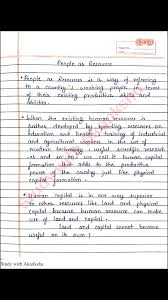 People as Resource
• People as Resource is a way of referring
to a country's working people in terms
of their existing productive skills and
abilities.
• When the existing human resource is
further developed by spending resources on
education and health, training of industrial
and agricultural workers in the use of
modern technology, useful scientific research
and so on, we call it human capital
formation that adds to the productive
power of the country just like physical
capital formation.
• Human capital is in one way superior
to other resources like land and physical
capital because human resource can make
use of land and capital.
land and capital cannot become
useful on its own!
Study with Akanksha